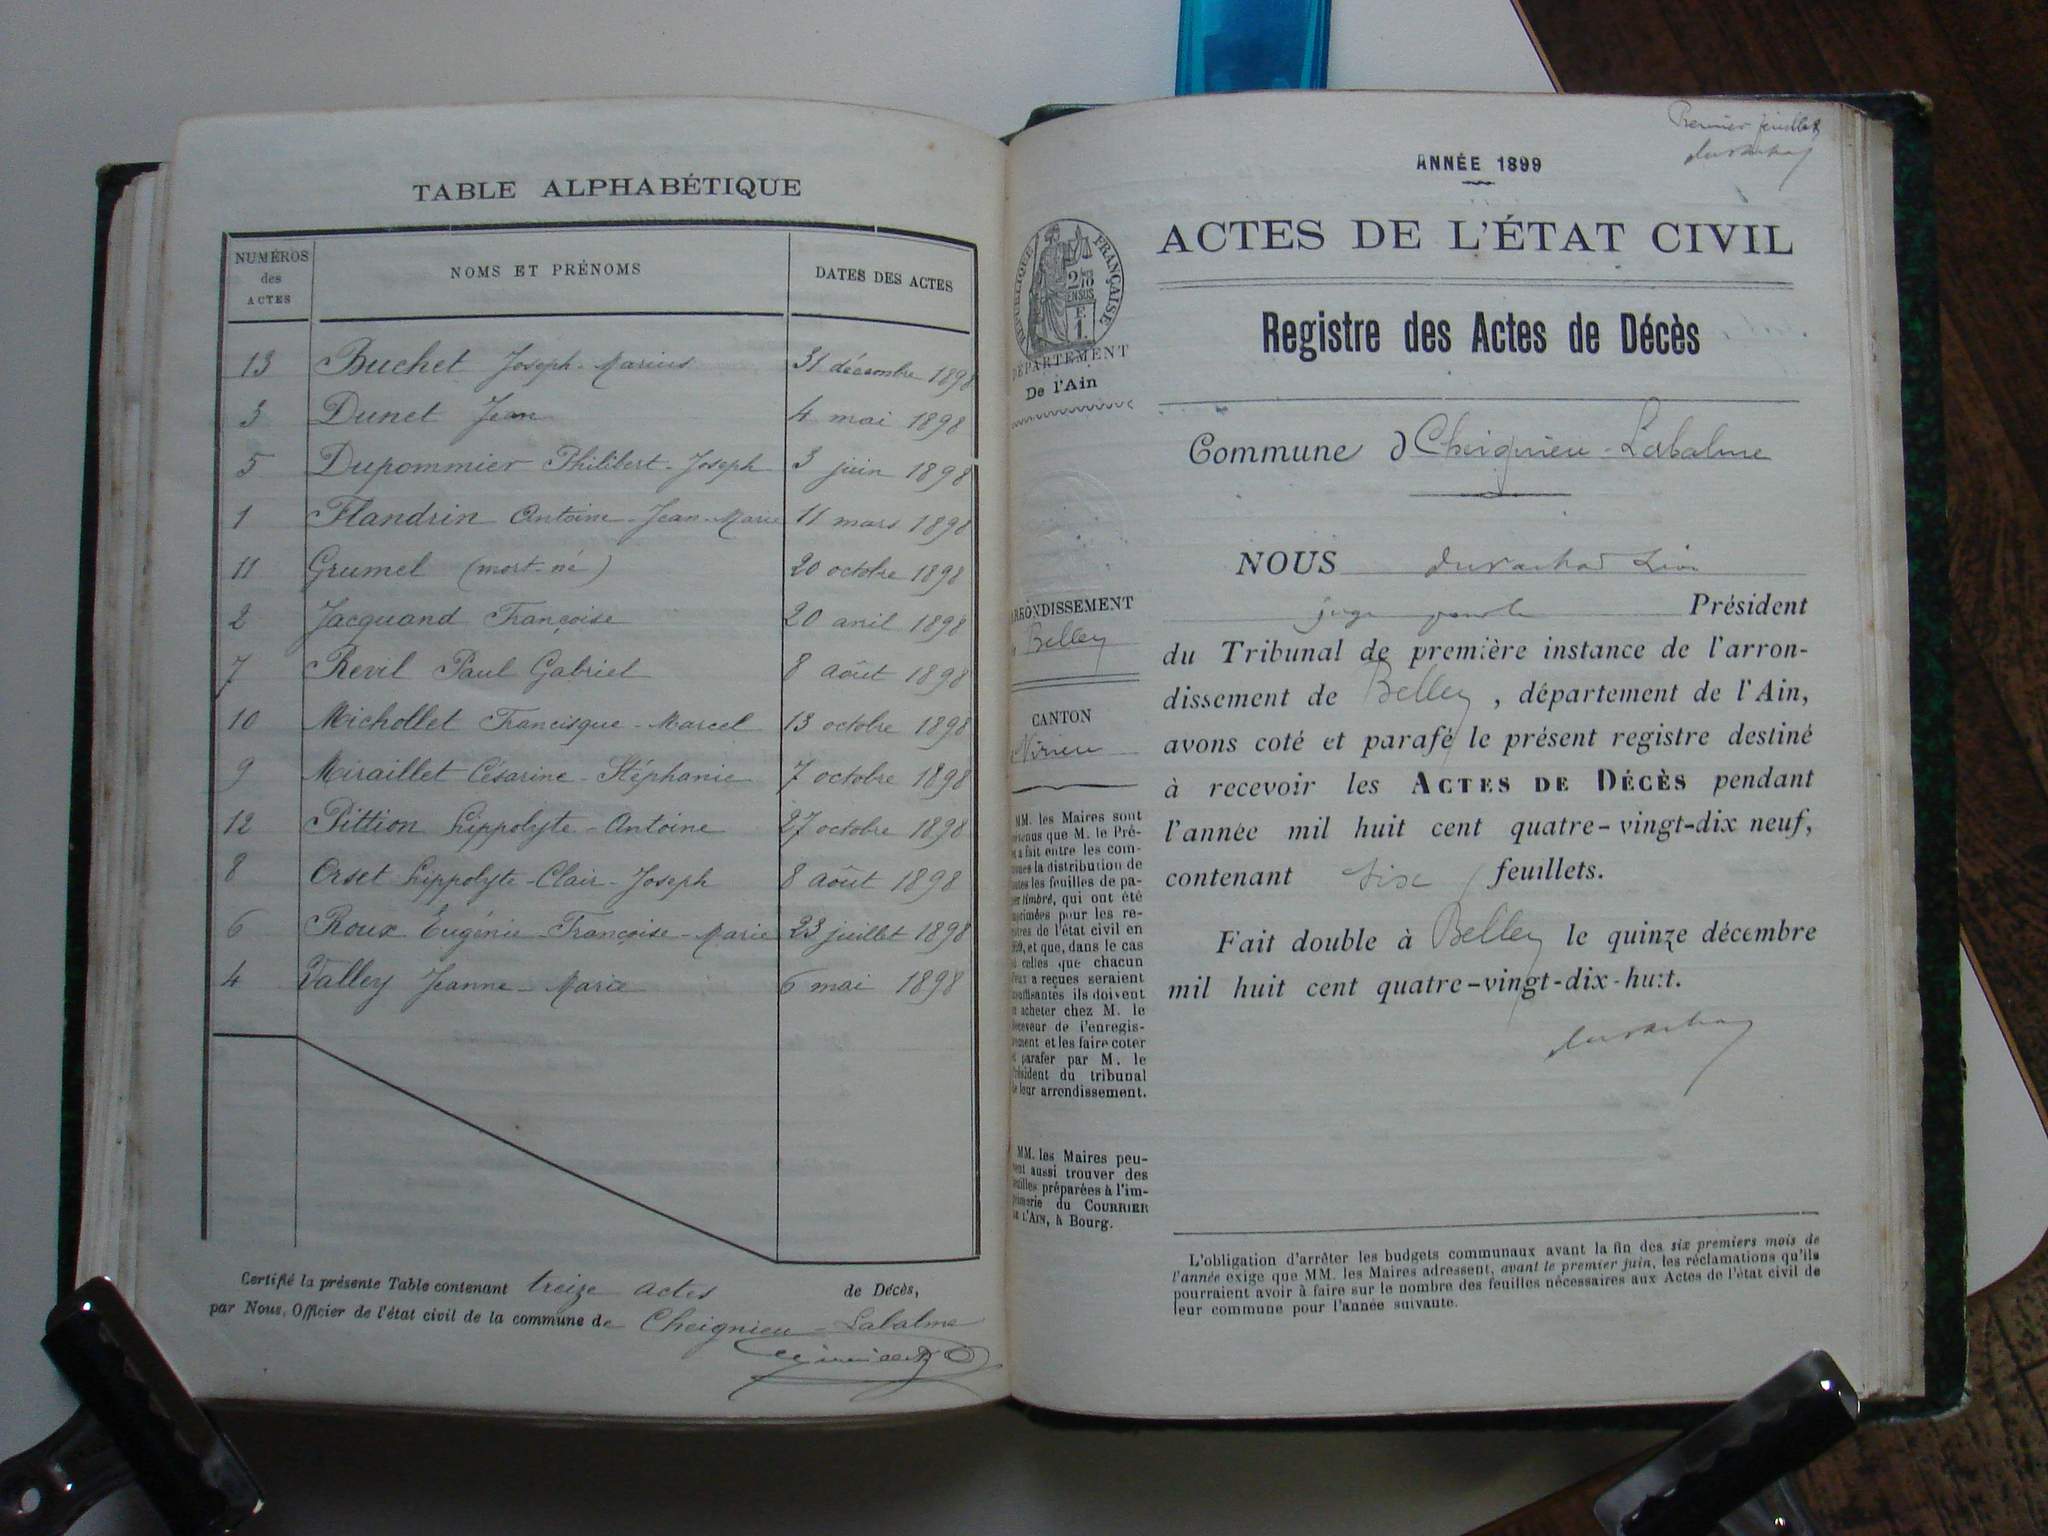 TABLE ALPHABÉTIQUE
NUMÉROS des ACTES NOMS ET PRÉNOMS DATES DES ACTES
13 Buchet Joseph-Marius 31 décembre 1898
3 Dunet Jean 4 mai 1898
5 Dupommier Philibert-Joseph 3 juin 1898
1 Flandrin Antoine-Jean-Marie 11 mars 1898
11 Grumel (mort-né) 20 octobre 1898
2 Jacquand Françoise 20 avril 1898
7 Revil Paul Gabriel 8 août 1898
10 Michollet Francisque-Marcel 13 octobre 1898
9 Miraillet Césarine-Stéphanie 7 octobre 1898
12 Pittion Hippolyte-Antoine 27 octobre 1898
8 Orset Hippolyte-Clair-Joseph 8 août 1898
6 Roux Eugénie-Françoise-Marie 23 juillet 1898
4 Valley Jeanne-Marie 6 mai 1898
Certifié la présente Table contenant treize actes de Décès,
par Nous, Officier de l'état civil de la commune de Cheignieu-Labalme
Premier feuillet
ANNÉE 1899
ACTES DE L'ÉTAT CIVIL
RÉPUBLIQUE FRANÇAISE
DÉPARTEMENT
De l'Ain
Registre des Actes de Décès
Commune d Cheignieu-Labalme
NOUS
Président
du Tribunal de première instance de l'arron-
dissement de Belley, département de l'Ain,
avons coté et parafé le présent registre destiné
à recevoir les ACTES DE DÉCÈS pendant
l'année mil huit cent quatre-vingt-dix neuf,
contenant six feuillets.
Fait double à Belley le quinze décembre
mil huit cent quatre-vingt-dix-huit.
ARRONDISSEMENT
Belley
CANTON
Virieu
MM. les Maires sont
que M. le Pré-
a fait entre les com-
la distribution de
les feuilles de pa-
timbré, qui ont été
pour les re-
de l'état civil en
et que, dans le cas
celles que chacun
a reçues seraient
ils doivent
acheter chez M. le
de l'enregis-
et les faire coter
parafer par M. le
du tribunal
leur arrondissement.
MM. les Maires peu-
aussi trouver des
préparées à l'im-
du COURRIER
L'AIN, à Bourg.
L'obligation d'arrêter les budgets communaux avant la fin des six premiers mois de
l'année exige que MM. les Maires adressent, avant le premier juin, les réclamations qu'ils
pourraient avoir à faire sur le nombre des feuilles nécessaires aux Actes de l'état civil de
leur commune pour l'année suivante.